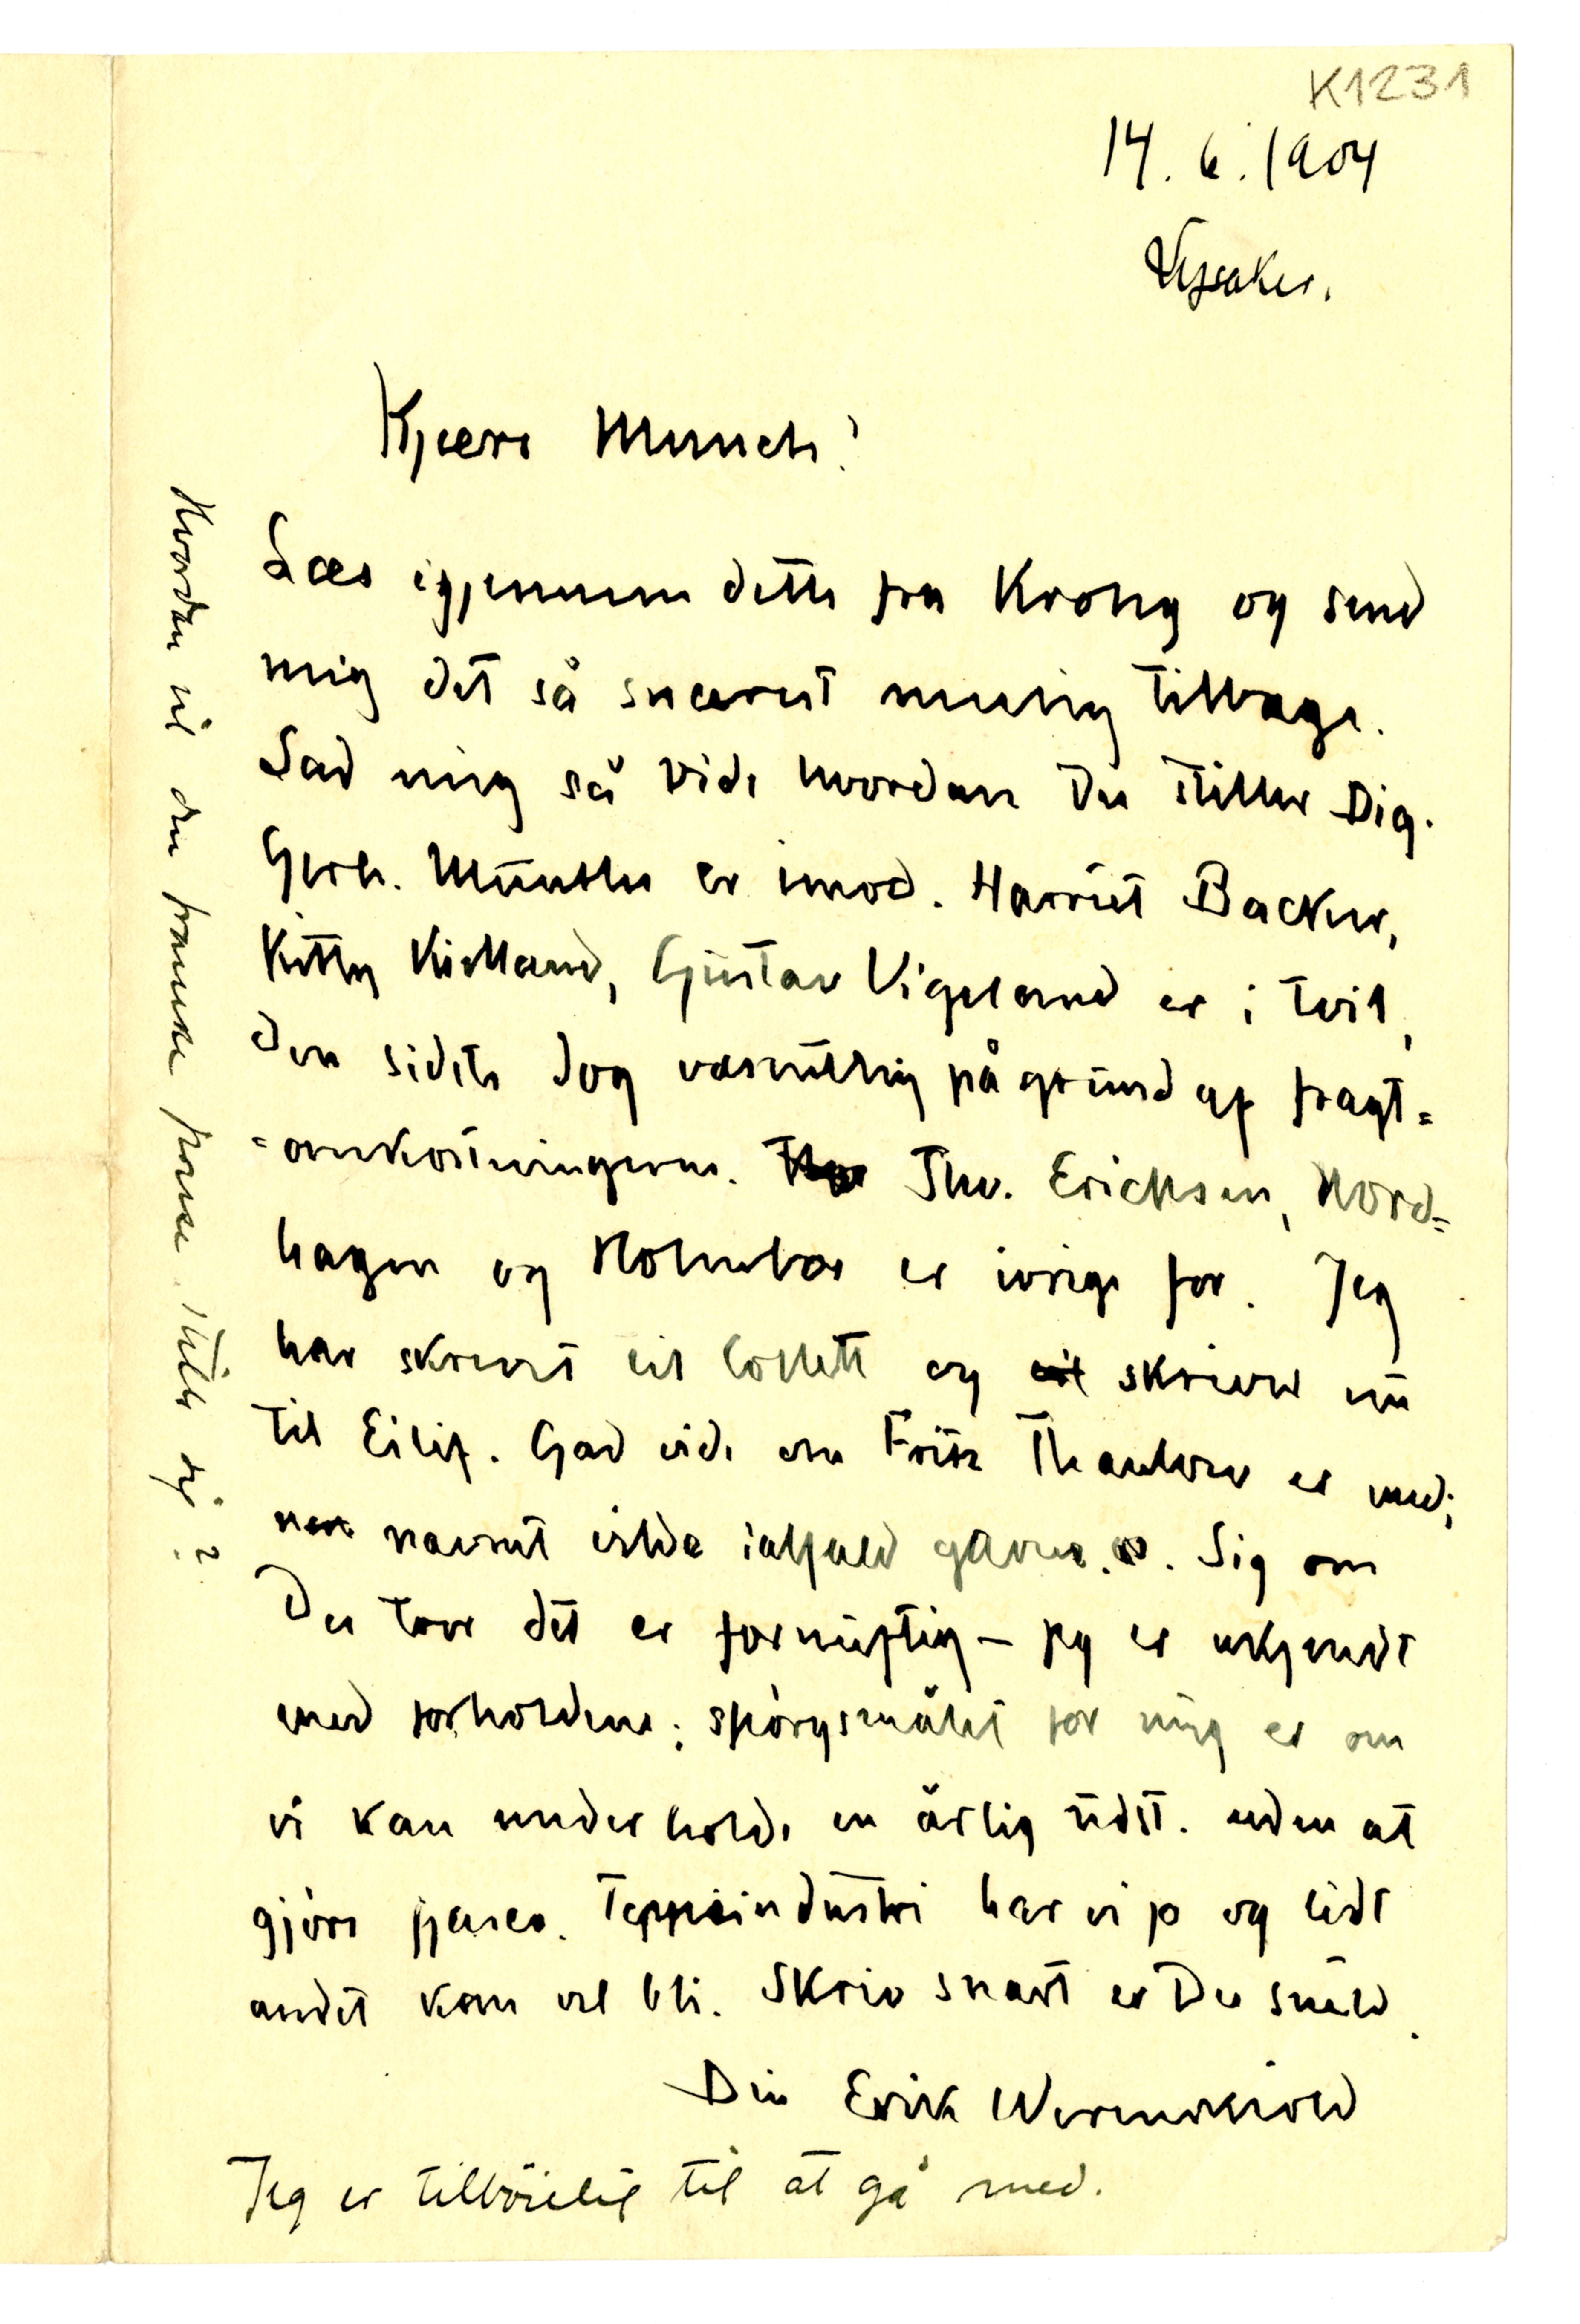 K1231
14. 6. 1904
Lysaker.
Kjære Munch!
Læs igjennem dette fra Krohg og send
mig det så snarest mulig tilbage.
Lad mig så vide hvordan Du stiller Dig.
Gerh. Munthe er imod. Harriet Backer,
Kitty Kielland, Gustav Vigeland er i tvil,
den sidste dog væsentlig på grund af fragt=
=omkostningerne. Thv. Erichsen, Nord=
hagen og Holmboe er ivrige for. Jeg
har skrevet til Collett og skriver nu
til Eilif. Gad vide om Fritz Thaulow er med;
navnet vilde ialfald gavne. Sig om
Du tror det er fornuftig – jeg er ukjendt
med forholdene; spörgsmålet for mig er om
vi kan underholde en årlig udst. uden at
gjöre fiasco. Teppeindustri har vi jo og lidt
andet kan vel bli. Skriv snart er Du snild.
Din Erik Werenskiold
Jeg er tilböielig til at gå med.
Hvordan vil den franske presse stille sig?